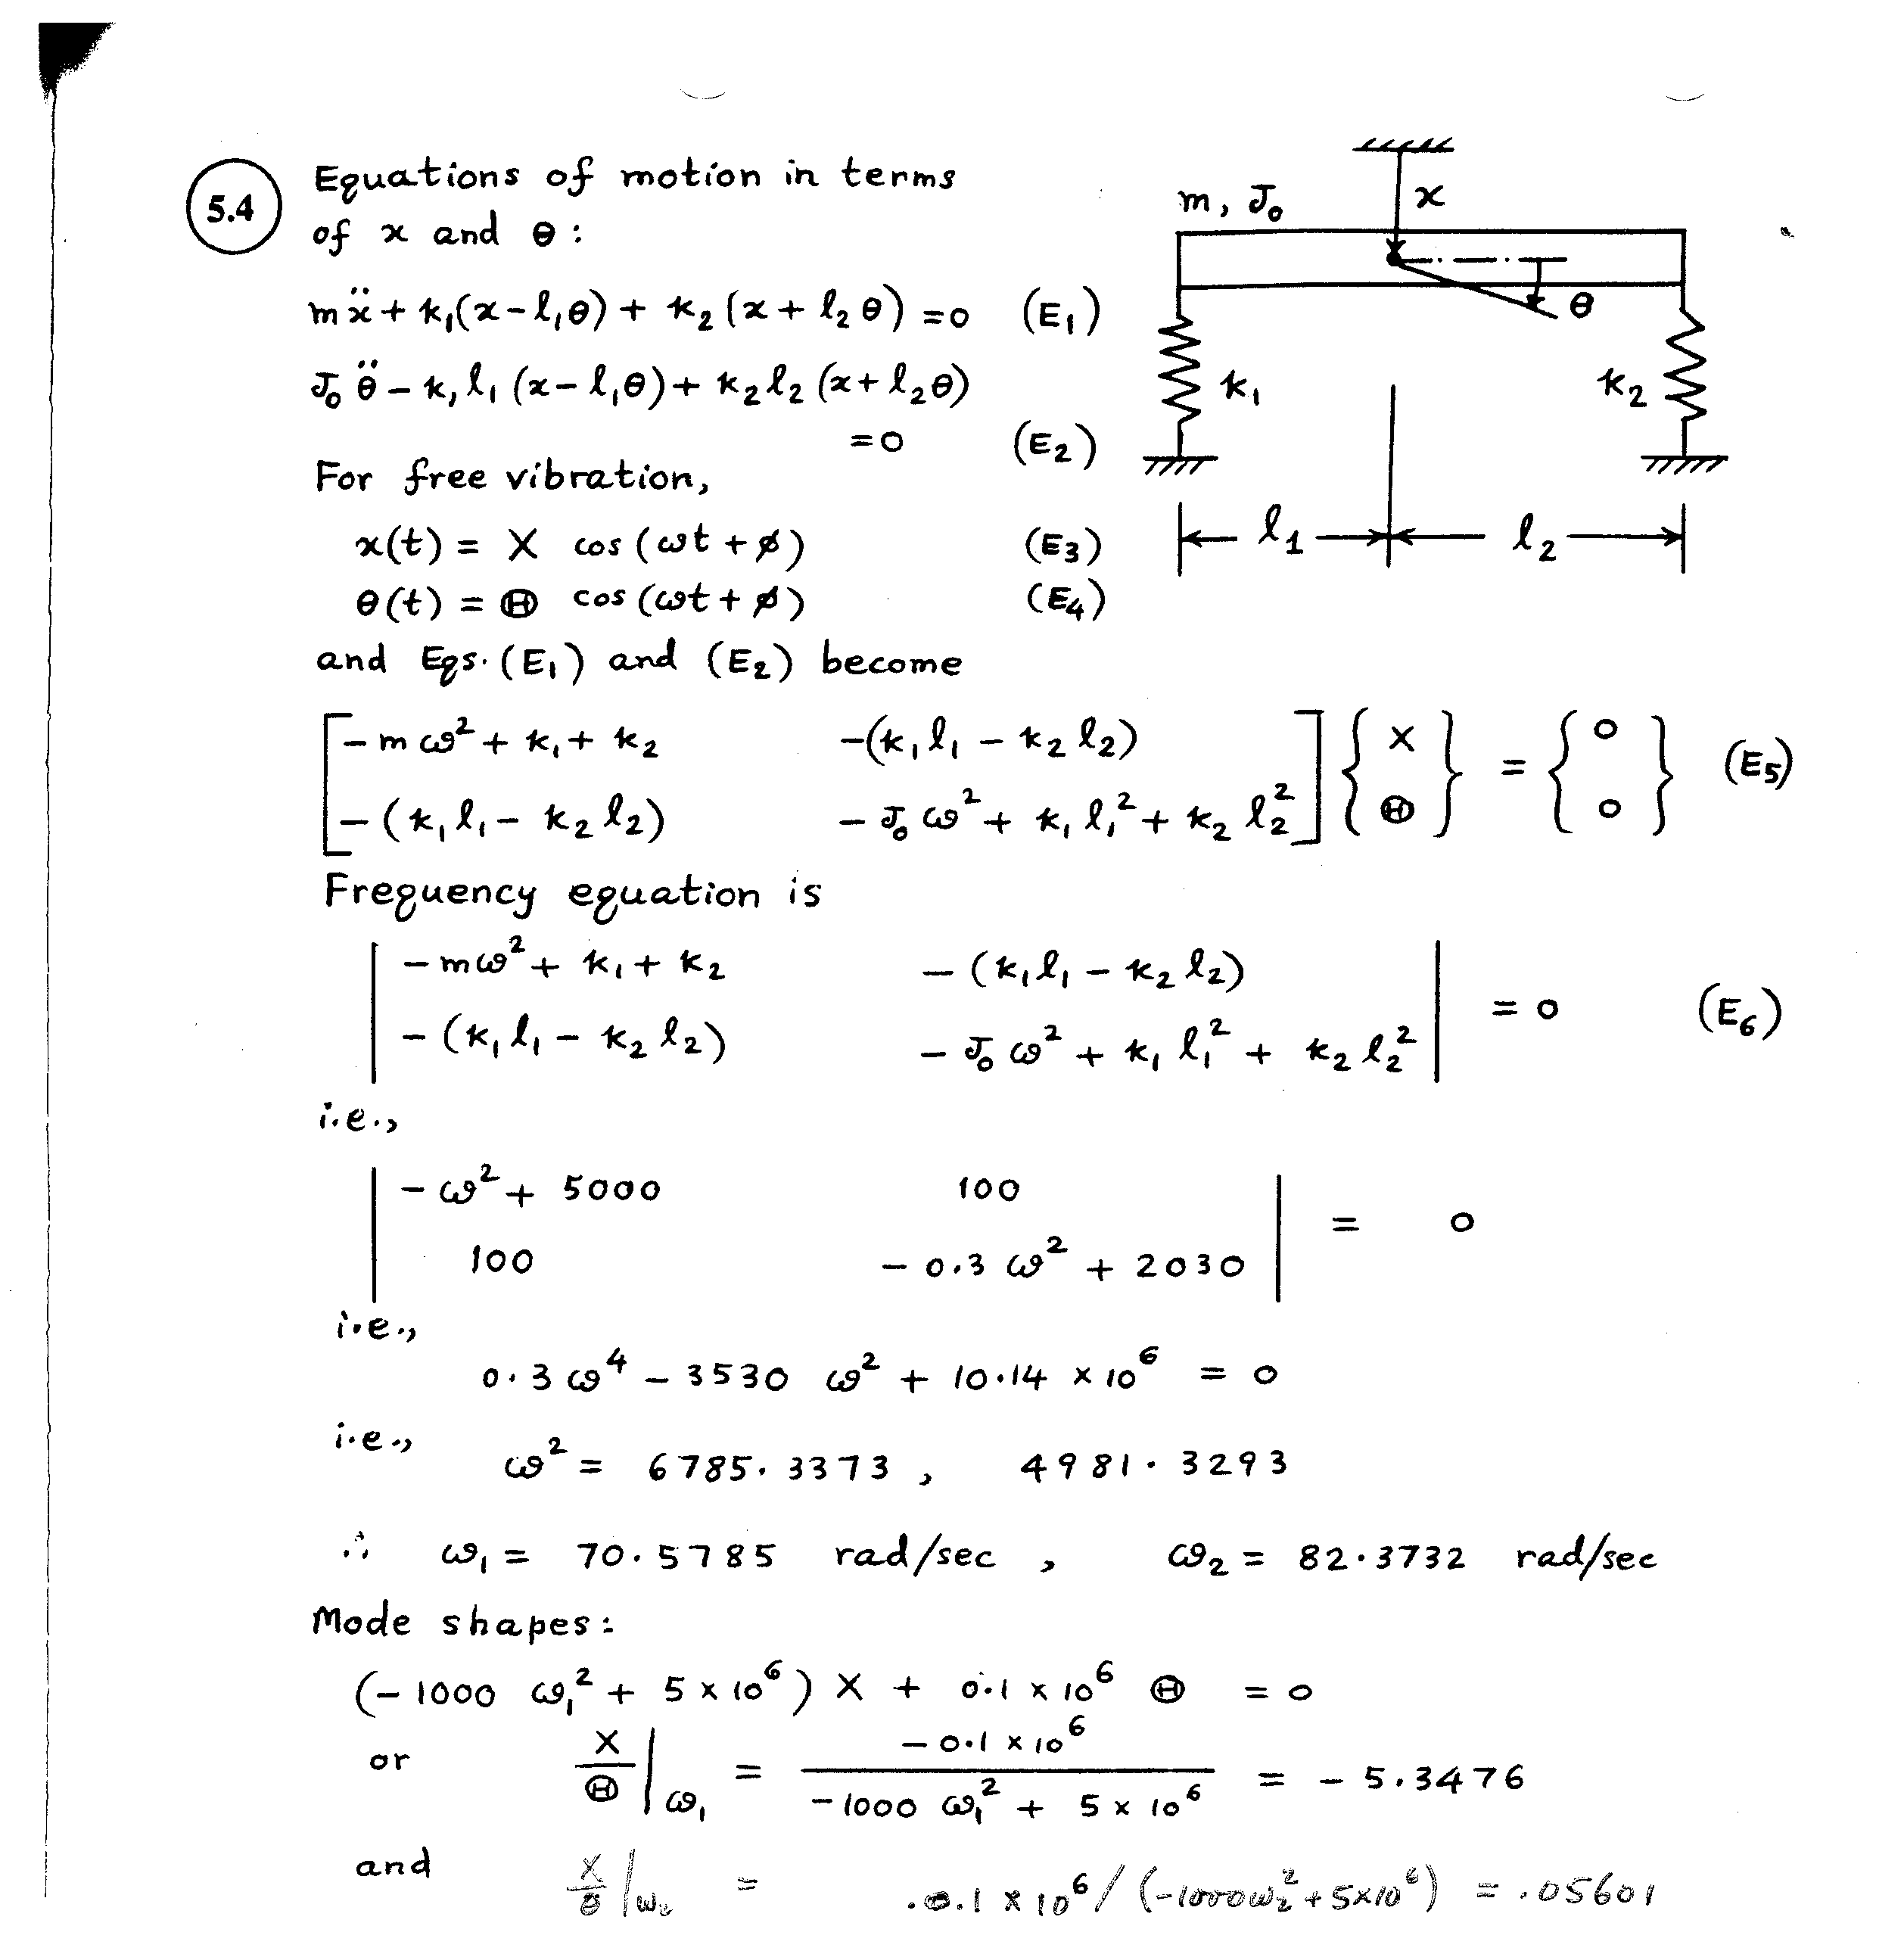 5.4 Equations of motion in terms
of x and θ:
mẍ + k₁(x − l₁θ) + k₂(x + l₂θ) = 0 (E₁)
J₀ θ̈ − k₁ l₁ (x − l₁θ) + k₂ l₂ (x + l₂θ)
= 0 (E₂)
m, J₀
x
θ
k₁
k₂
l₁
l₂
For free vibration,
x(t) = X cos (ωt + ϕ) (E₃)
θ(t) = Θ cos (ωt + ϕ) (E₄)
and Eqs. (E₁) and (E₂) become
[ −mω² + k₁ + k₂ −(k₁ l₁ − k₂ l₂)
−(k₁ l₁ − k₂ l₂) −J₀ ω² + k₁ l₁² + k₂ l₂² ] { X Θ } = { 0 0 } (E₅)
Frequency equation is
| −mω² + k₁ + k₂ −(k₁ l₁ − k₂ l₂) |
| −(k₁ l₁ − k₂ l₂) −J₀ ω² + k₁ l₁² + k₂ l₂² | = 0 (E₆)
i.e.,
| −ω² + 5000 100 |
| 100 −0.3 ω² + 2030 | = 0
i.e.,
0.3 ω⁴ − 3530 ω² + 10.14 × 10⁶ = 0
i.e., ω² = 6785.3373 , 4981.3293
∴ ω₁ = 70.5785 rad/sec , ω₂ = 82.3732 rad/sec
Mode shapes:
(−1000 ω₁² + 5 × 10⁶) X + 0.1 × 10⁶ Θ = 0
or X/Θ |ω₁ = −0.1 × 10⁶ / (−1000 ω₁² + 5 × 10⁶) = −5.3476
and X/Θ |ω₂ = .0.1 × 10⁶ / (−1000ω₂² + 5×10⁶) = .05601